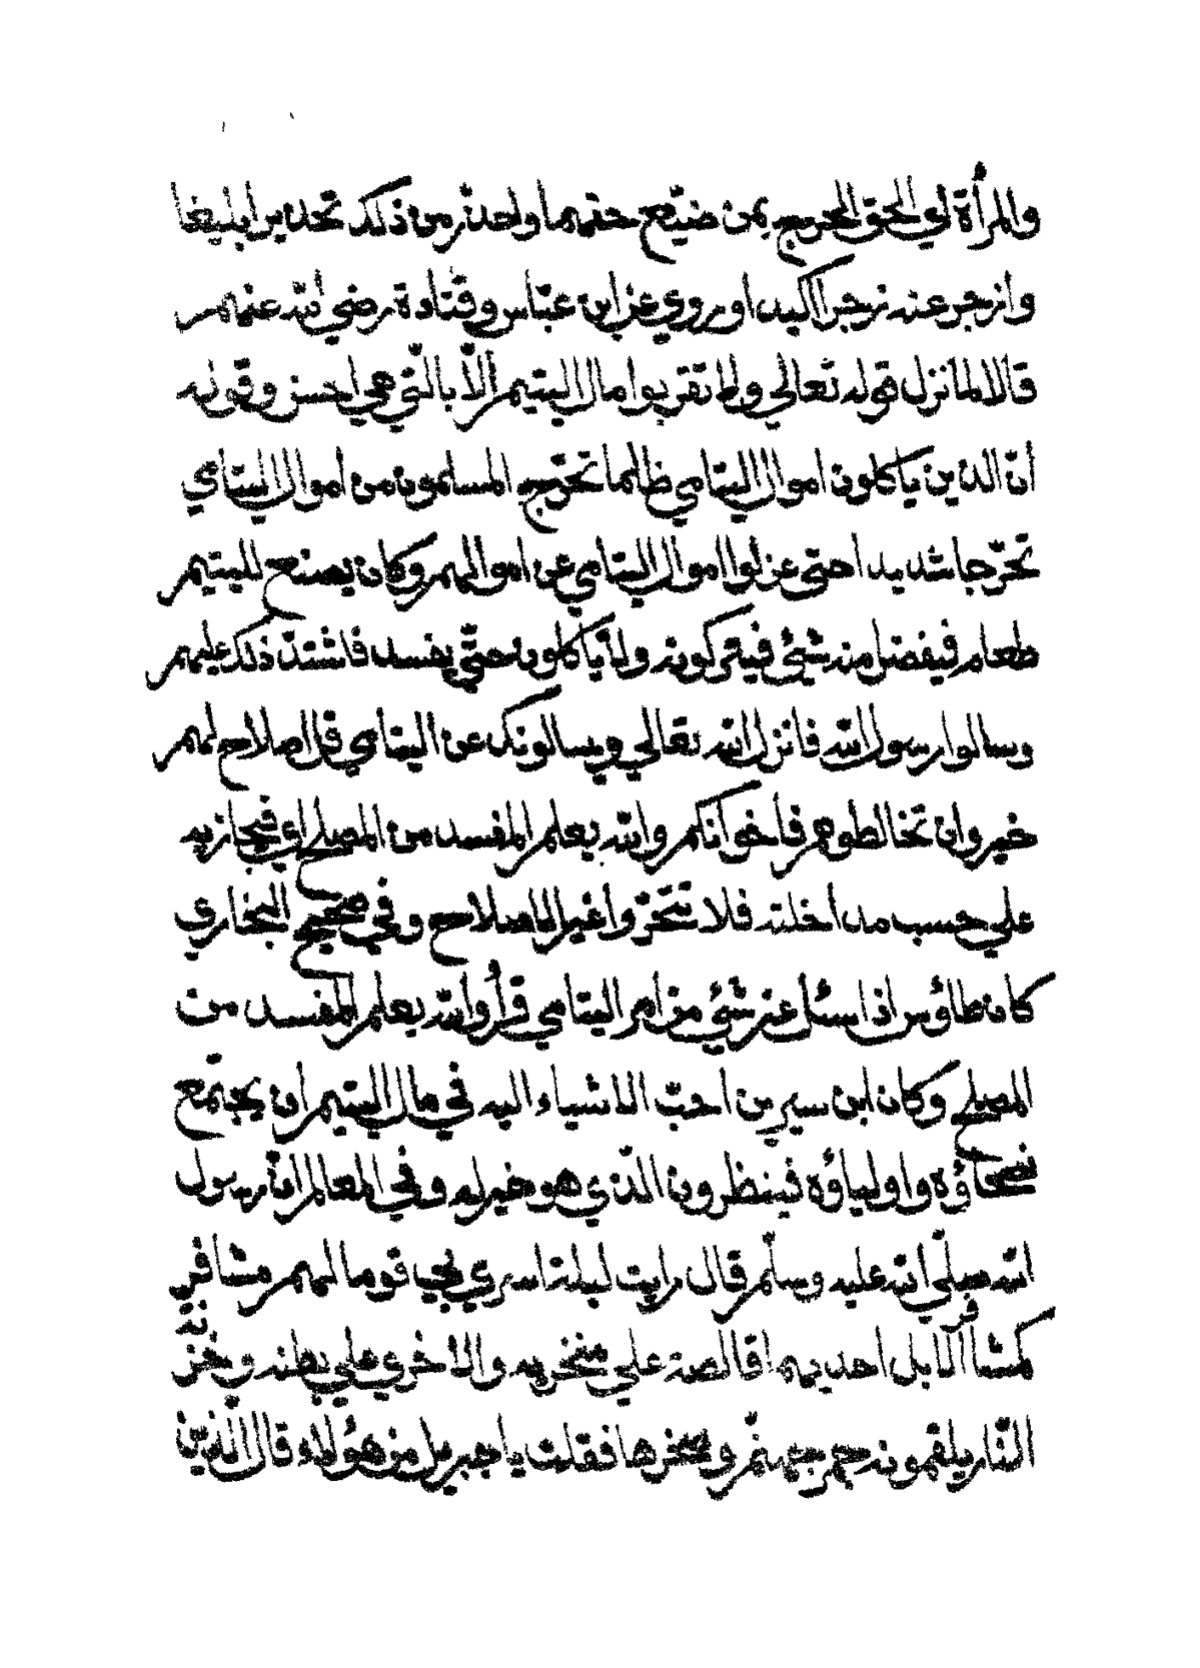 والمرأة أي الحق الحرج بمن ضيّع حقهما واحذّر من ذلك تحذيرا بليغا
وازجر عنه زجرا اكيدا وروي عن ابن عبّاس وقتادة رضي الله عنهم
قالا لما نزل قوله تعالي ولا تقربوا مال اليتيم الّا بالّتي هي احسن وقوله
أنّ الذين ياكلون اموال اليتامي ظلما تحرّج المسلمون من أموال اليتامي
تحرّجا شديدا حتي عزلوا اموال اليتامي عن اموالهم وكان يصنع لليتيم
طعام فيفضل منه شئ فيتركونه ولا ياكلونه حتّي يفسد فاشتدّ ذلك عليهم
وسالوا رسول الله فانزل الله تعالي ويسالونك عن اليتامي قل اصلاح لهم
خير وان تخالطوهم فأخوانكم والله يعلم المفسد من المصلح اي فيجازيه
علي حسب مداخلته فلا تتحرّوا غير الاصلاح وفي صحيح البخاري
كان طاؤس اذا سئل عن شئ من امر اليتامي قرأ والله يعلم المفسد من
المصلح وكان ابن سيرين احبّ الاشياء اليه في مال اليتيم أن يجتمع
نصحاؤه واولياؤه فينظرون الّذي هو خير له وفي المعالم انّ رسول
الله صلّي الله عليه وسلّم قال رايت ليلة اسري بي قوما لهم مشافر
كمشافر الابل احديهما قالصة علي منخريه والاخري علي بطنه وخزنة
النّار يلقمونه جمر جهنّم وصخرها فقلت يا جبريل من هؤلاء قال الّذين